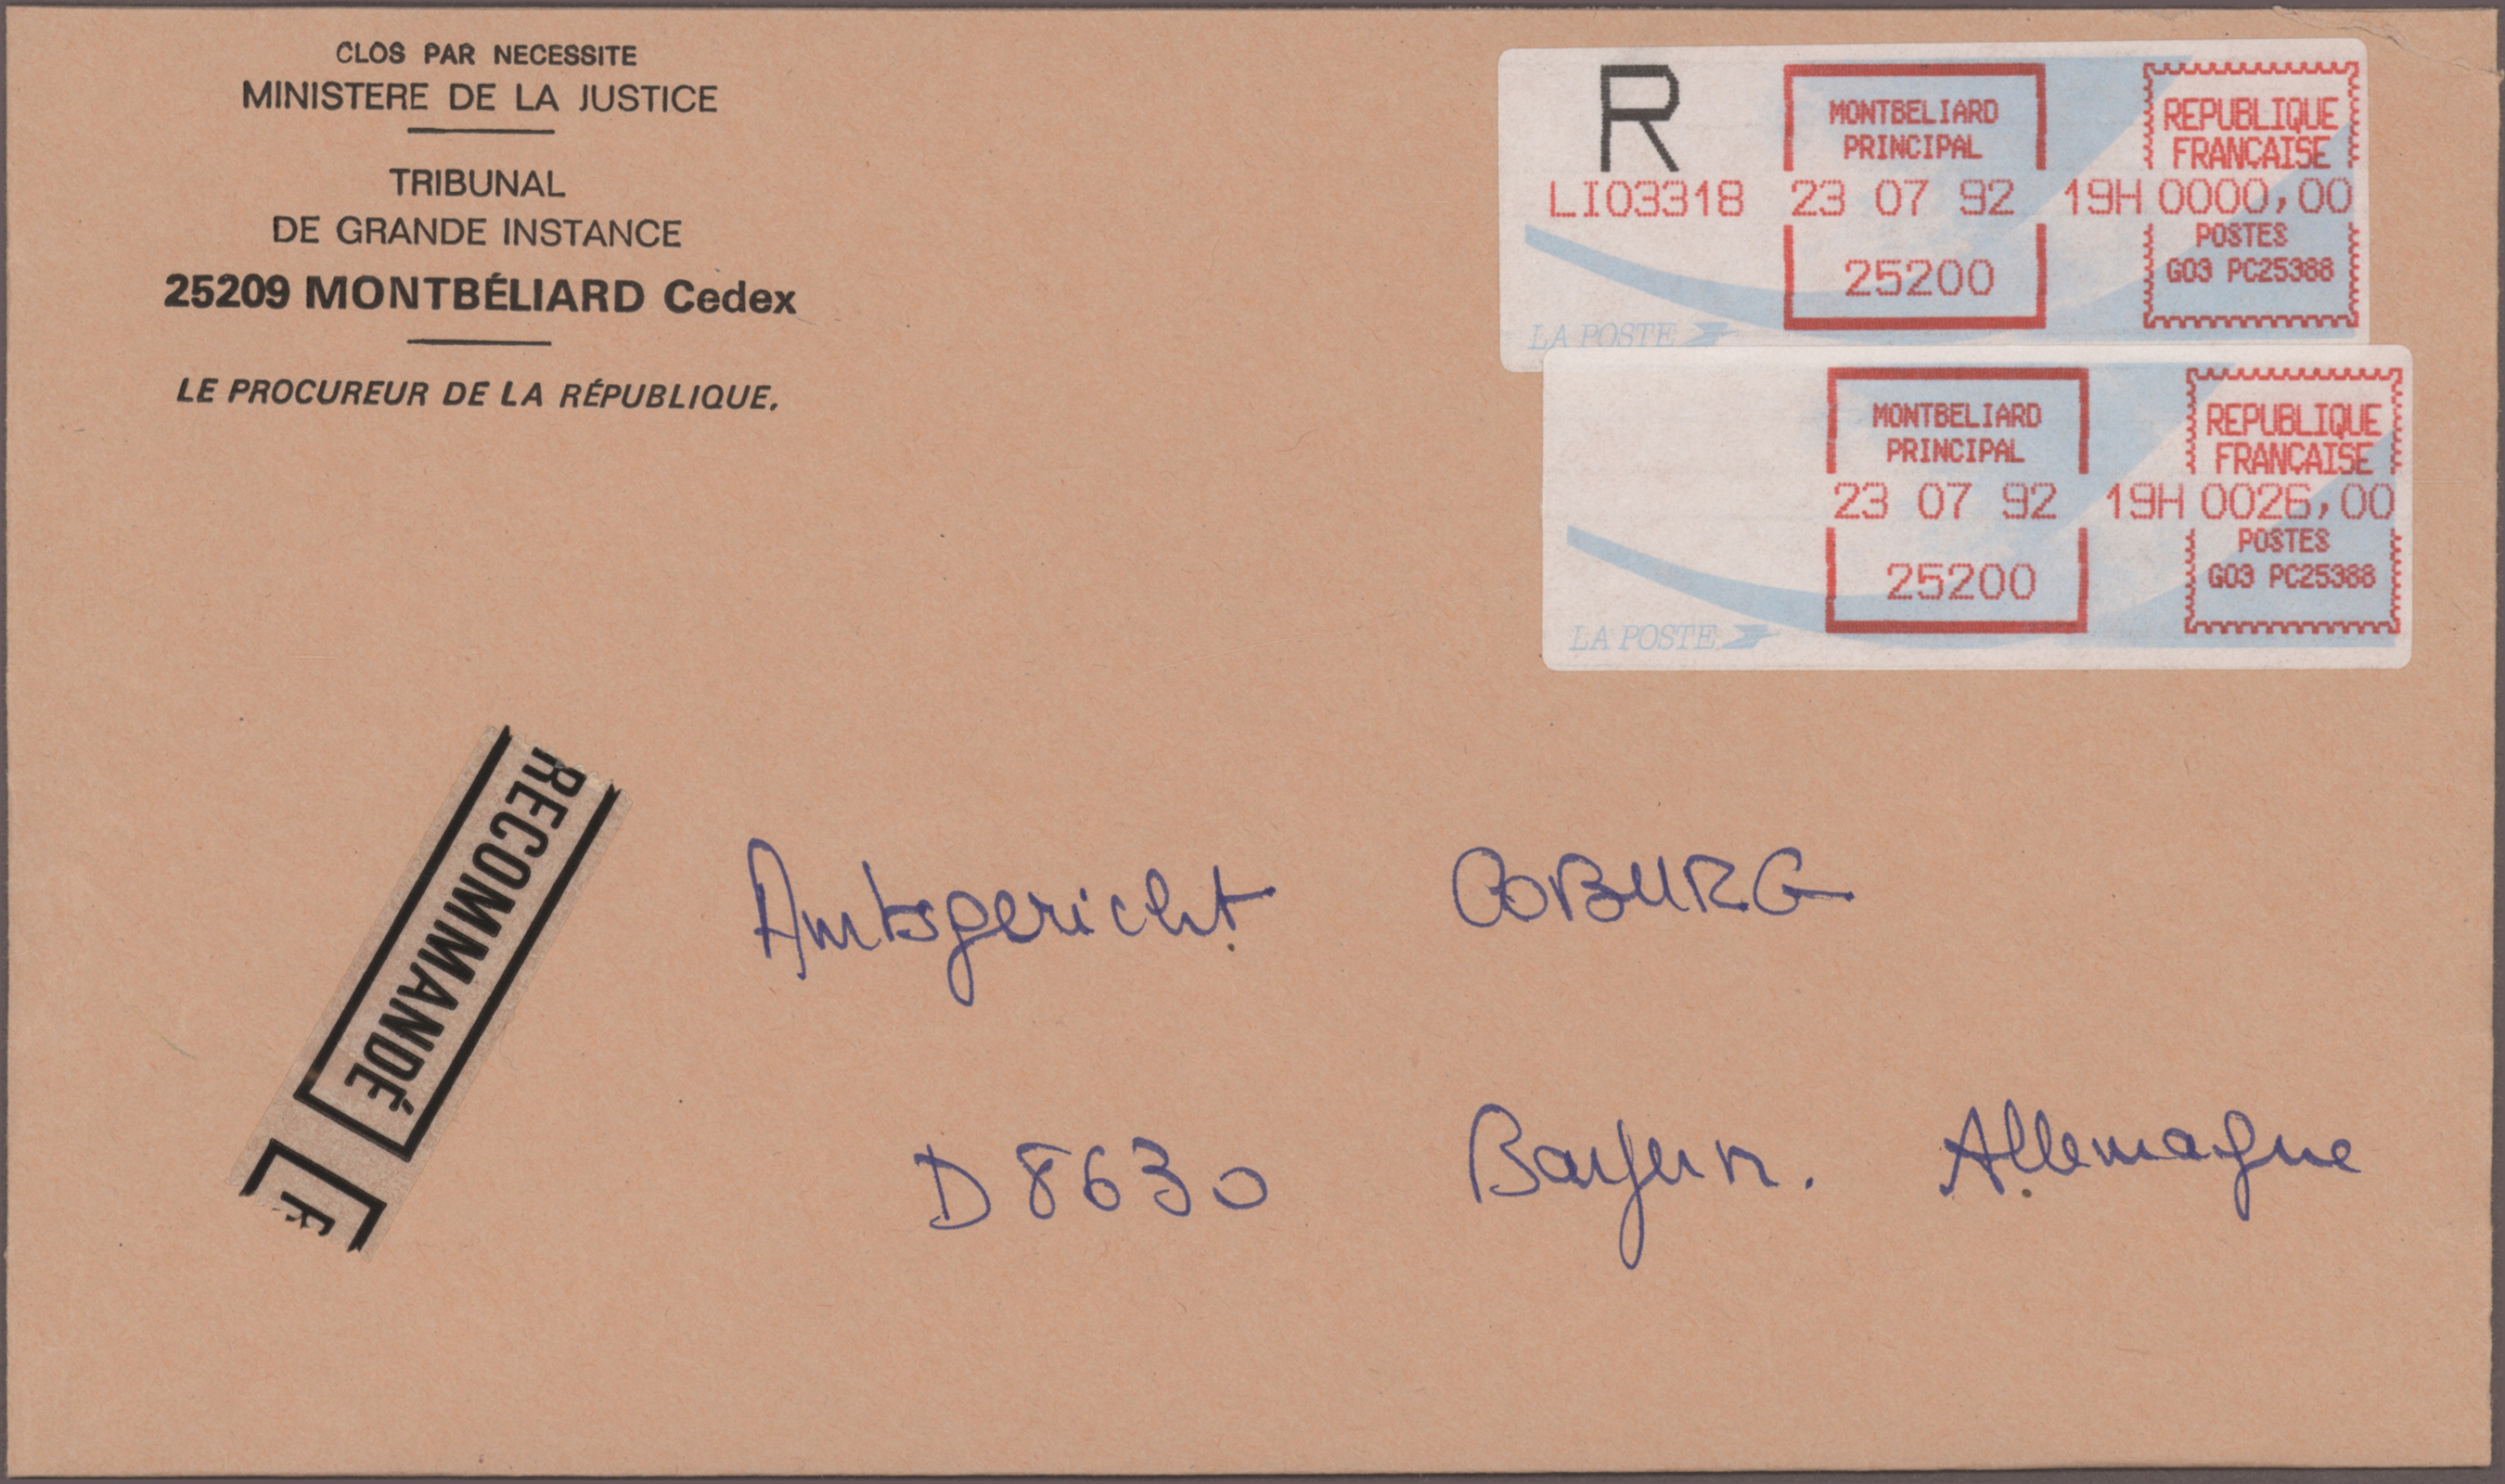 CLOS PAR NECESSITE
MINISTERE DE LA JUSTICE
TRIBUNAL
DE GRANDE INSTANCE
25209 MONTBÉLIARD Cedex
LE PROCUREUR DE LA RÉPUBLIQUE.
R
MONTBELIARD
PRINCIPAL
REPUBLIQUE
FRANÇAISE
LI03318 23 07 92 19H 0000,00
25200
POSTES
G03 PC25388
LA POSTE
MONTBELIARD
PRINCIPAL
REPUBLIQUE
FRANÇAISE
23 07 92 19H 0026,00
25200
POSTES
G03 PC25388
LA POSTE
RECOMMANDÉ
Amtsgericht COBURG
D 8630 Bayern. Allemagne